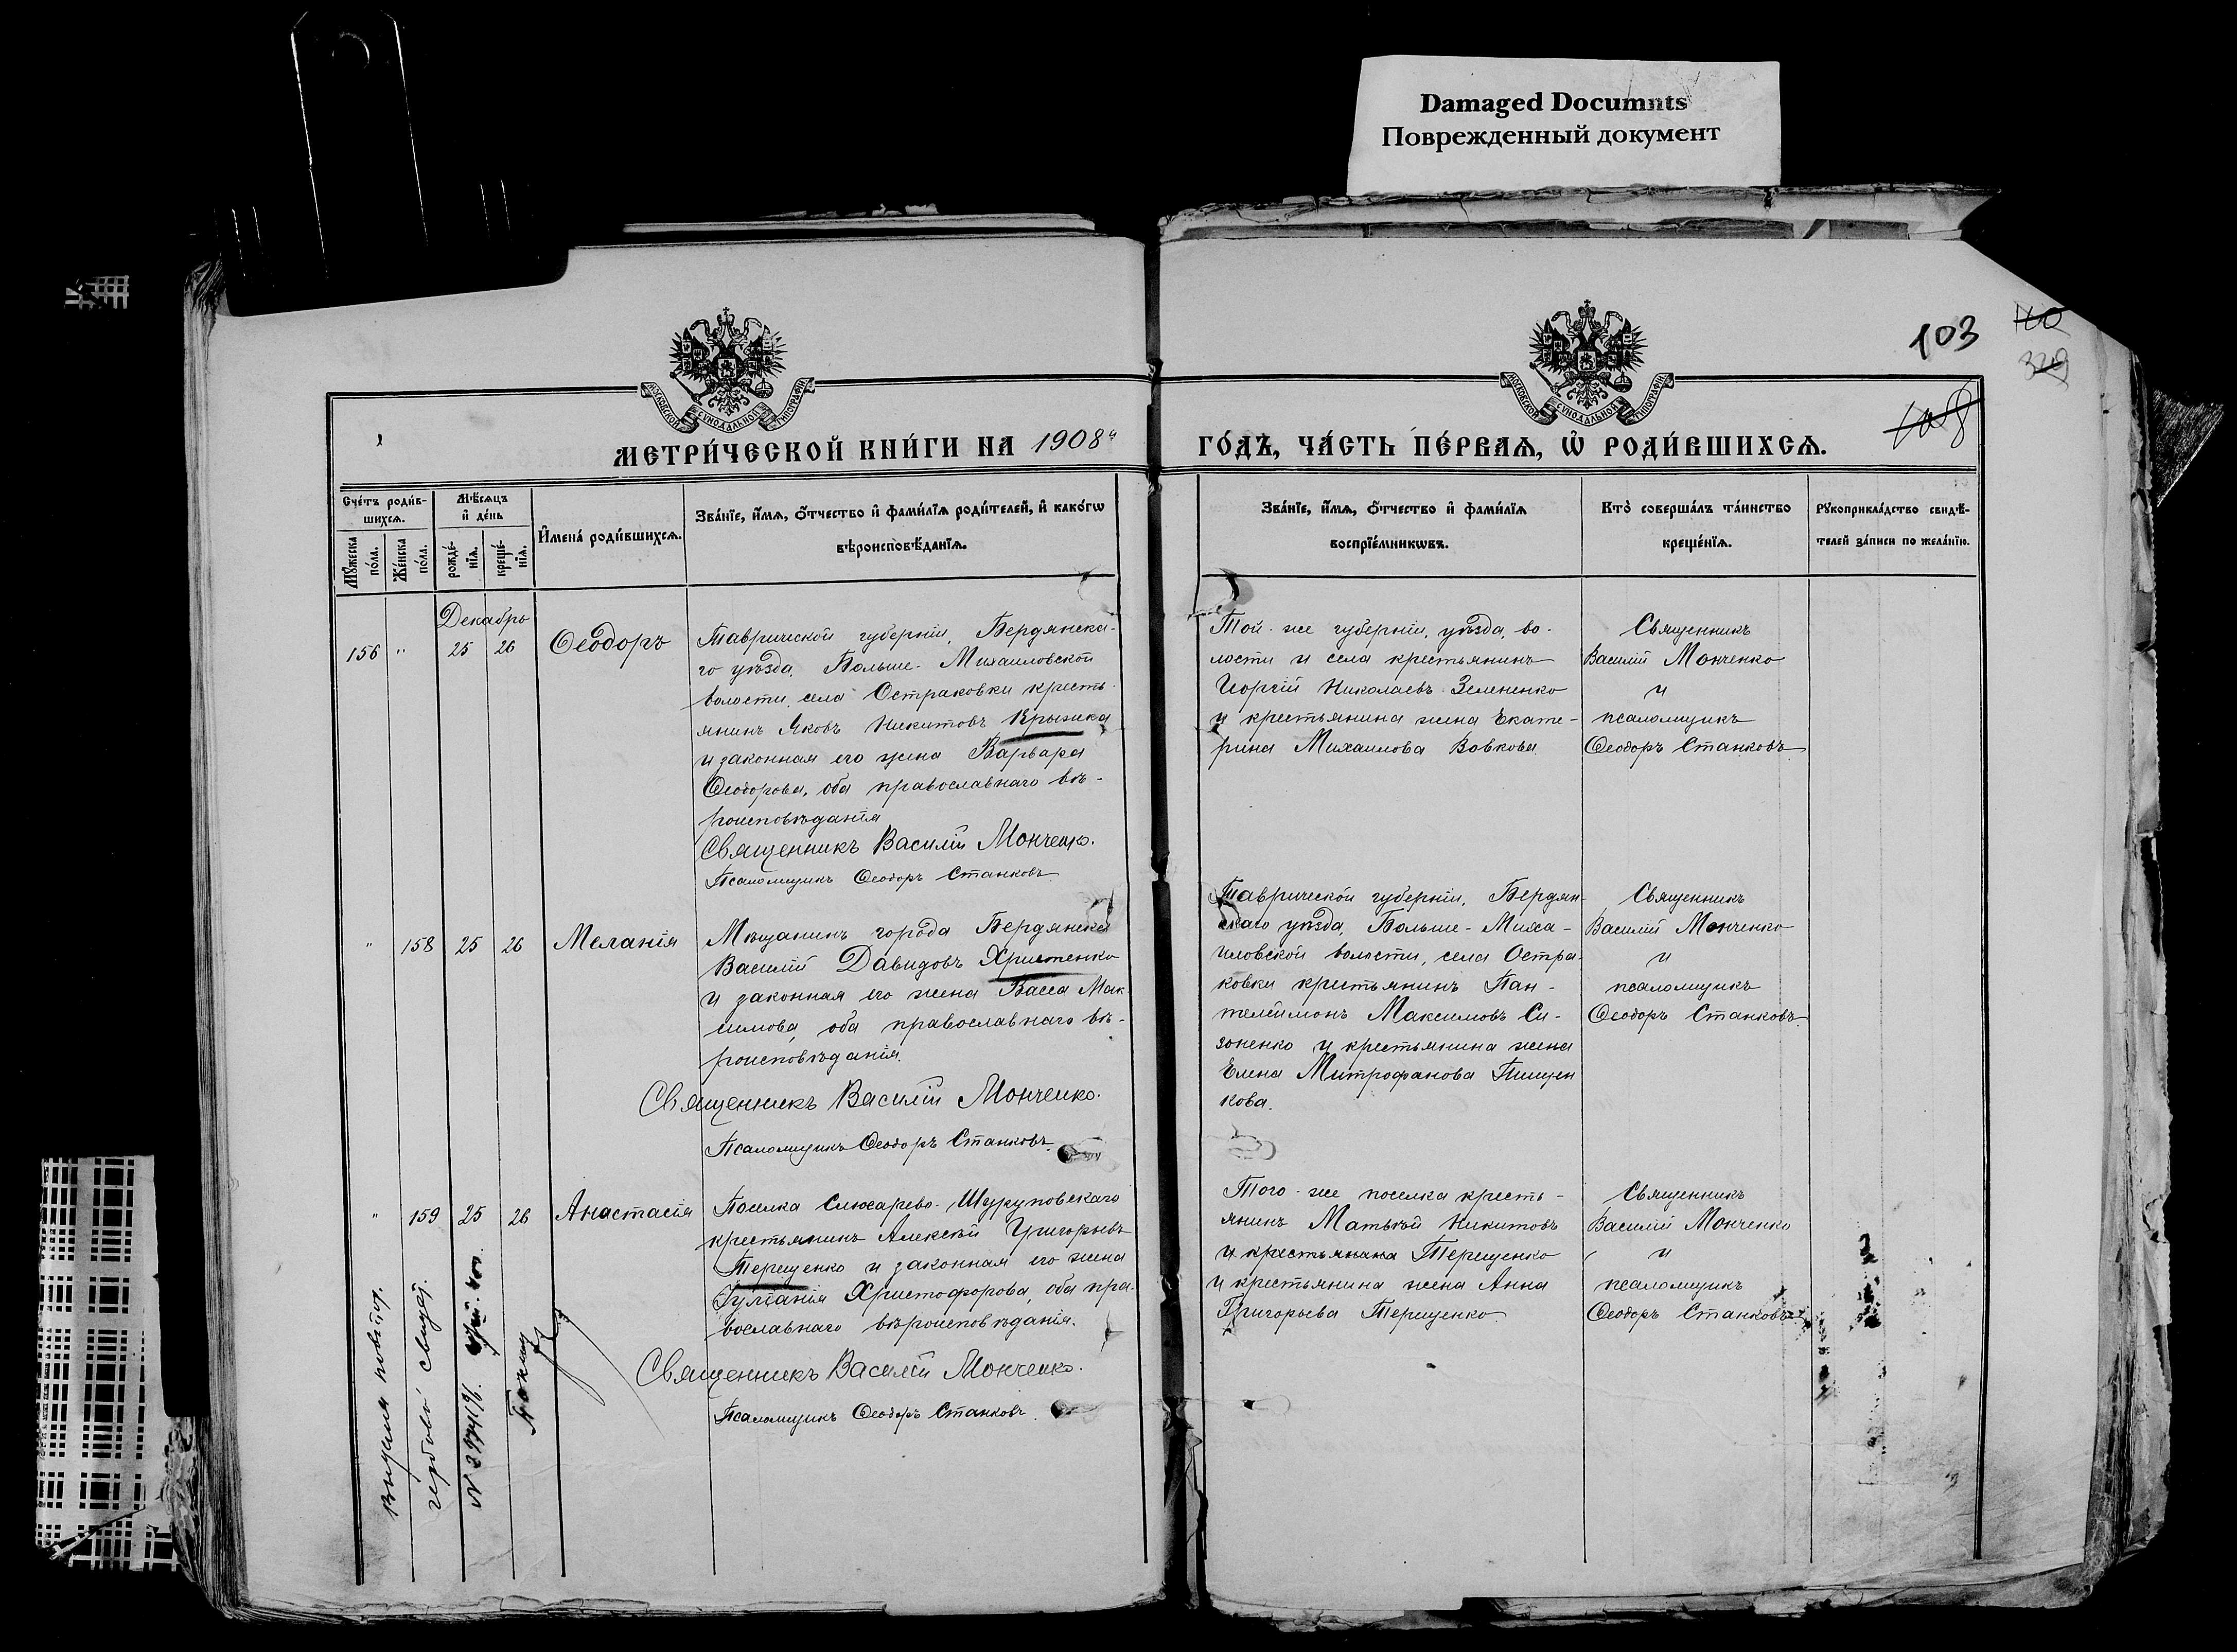 Damaged Documnts
Поврежденный документ
103
МОСКОВСКОЙ СѴНОДАЛЬНОЙ ТИПОГРАФІИ
МОСКОВСКОЙ СѴНОДАЛЬНОЙ ТИПОГРАФІИ
МЕТРИ́ЧЕСКОЙ КНИ́ГИ НА 1908й
ГО́ДЪ, ЧА́СТЬ ПЕ́РВАѦ, Ѽ РОДИ́ВШИХСѦ.
Сче́тъ роди́в-
шихсѧ.
Мѣ́сѧцъ
и҆ де́нь
Мꙋ́жеска
по́ла.
Же́нска
по́ла.
рожде́-
нїѧ.
креще́-
нїѧ.
И҆мена̀ роди́вшихсѧ.
Зва́нїе, и҆́мѧ, ѻ҆́тчество и҆ фами́лїѧ роди́телей, и҆ како́гѡ
вѣроисповѣ́данїѧ.
Зва́нїе, и҆́мѧ, ѻ҆́тчество и҆ фами́лїѧ
воспрїе́мникѡвъ.
Кто̀ соверша́лъ та́инство
креще́нїѧ.
Рꙋкоприкла́дство свидѣ́-
телей за́писи по жела́нїю.
Декабрь
156 " 25 26 Ѳеодоръ
Таврической губерніи, Бердянска-
го уѣзда, Больше-Михаиловской
волости, села Остраковки кресть-
янинъ Яковъ Никитовъ Крыжка
и законная его жена Варвара
Ѳеодорова, оба православнаго вѣ-
роисповѣданія
Священникъ Василій Монченко.
Псаломщикъ Ѳеодоръ Станковъ
Той-же губерніи, уѣзда, во-
лости и села крестьянинъ
Георгій Николаевъ Зелененко
и крестьянина жена Екате-
рина Михаилова Вовкова
Священникъ
Василій Монченко
и
псаломщикъ
Ѳеодоръ Станковъ
" 158 25 26 Меланія
Мѣщанинъ города Бердянска
Василій Давидовъ Христенко
и законная его жена Васса Мак-
симова, оба православнаго вѣ-
роисповѣданія.
Священникъ Василій Монченко.
Псаломщикъ Ѳеодоръ Станковъ
Таврической губерніи, Бердян-
скаго уѣзда, Больше-Миха-
иловской волости, села Остра-
ковки крестьянинъ Пан-
телеимонъ Максимовъ Си-
зоненко и крестьянина жена
Елена Митрофанова Пищен
кова.
Священникъ
Василій Монченко
и
псаломщикъ
Ѳеодоръ Станковъ
" 159 25 26 Анастасія
Поселка Слюсарево-Шуруповскаго
крестьянинъ Алексѣй Григорьевъ
Терещенко и законная его жена
Іуліанія Христофорова, оба пра-
вославнаго вѣроисповѣданія.
Священникъ Василій Монченко.
Псаломщикъ Ѳеодоръ Станковъ
Того-же поселка кресть-
янинъ Матвѣй Никитовъ
и крестьянина Терещенко
и крестьянина жена Анна
Григорьева Терещенко
Священникъ
Василій Монченко
и
псаломщикъ
Ѳеодоръ Станковъ